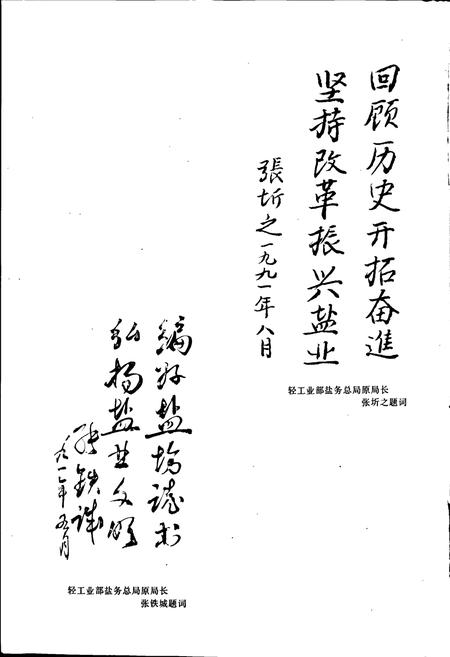 回顾历史开拓奋進
坚持改革振兴盐业
張圻之一九九一年八月
轻工业部盐务总局原局长
张圻之题词
编好盐场志书
弘扬盐业文明
张铁城
一九九一年五月
轻工业部盐务总局原局长
张铁城题词